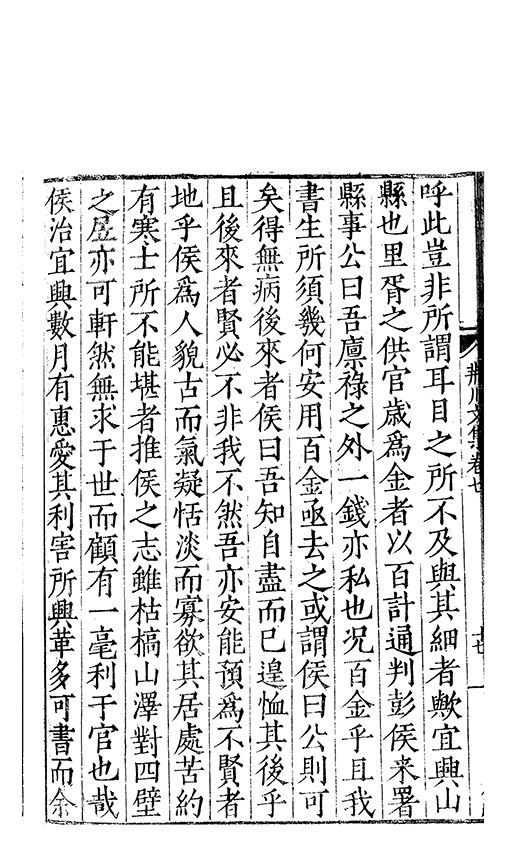 呼此豈非所謂耳目之所不及與其細者歟宜興山
縣也里胥之供官歲爲金者以百計通判彭侯来署
縣事公曰吾廪祿之外一錢亦私也况百金乎且我
書生所須幾何安用百金亟去之或謂侯曰公則可
矣得無病後來者侯曰吾知自盡而已遑恤其後乎
且後來者賢必不非我不然吾亦安能預爲不賢者
地乎侯爲人貌古而氣凝恬淡而寡欲其居處苦約
有寒士所不能堪者推侯之志雖枯槁山澤對四壁
之居亦可軒然無求于世而顧有一毫利于官也哉
侯治宜興數月有惠愛其利害所興革多可書而余